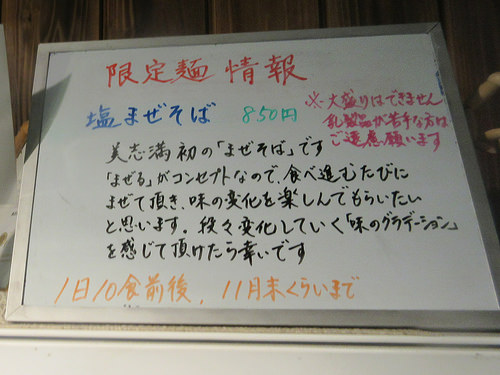 限定麺 情報
塩まぜそば 850円
※大盛りはできません
乳製品が苦手な方は
ご遠慮願います
美志満初の「まぜそば」です
「まぜる」がコンセプトなので、食べ進むたびに
まぜて頂き、味の変化を楽しんでもらいたい
と思います。段々変化していく「味のグラデーション」
を感じて頂けたら幸いです
1日10食前後、11月末くらいまで